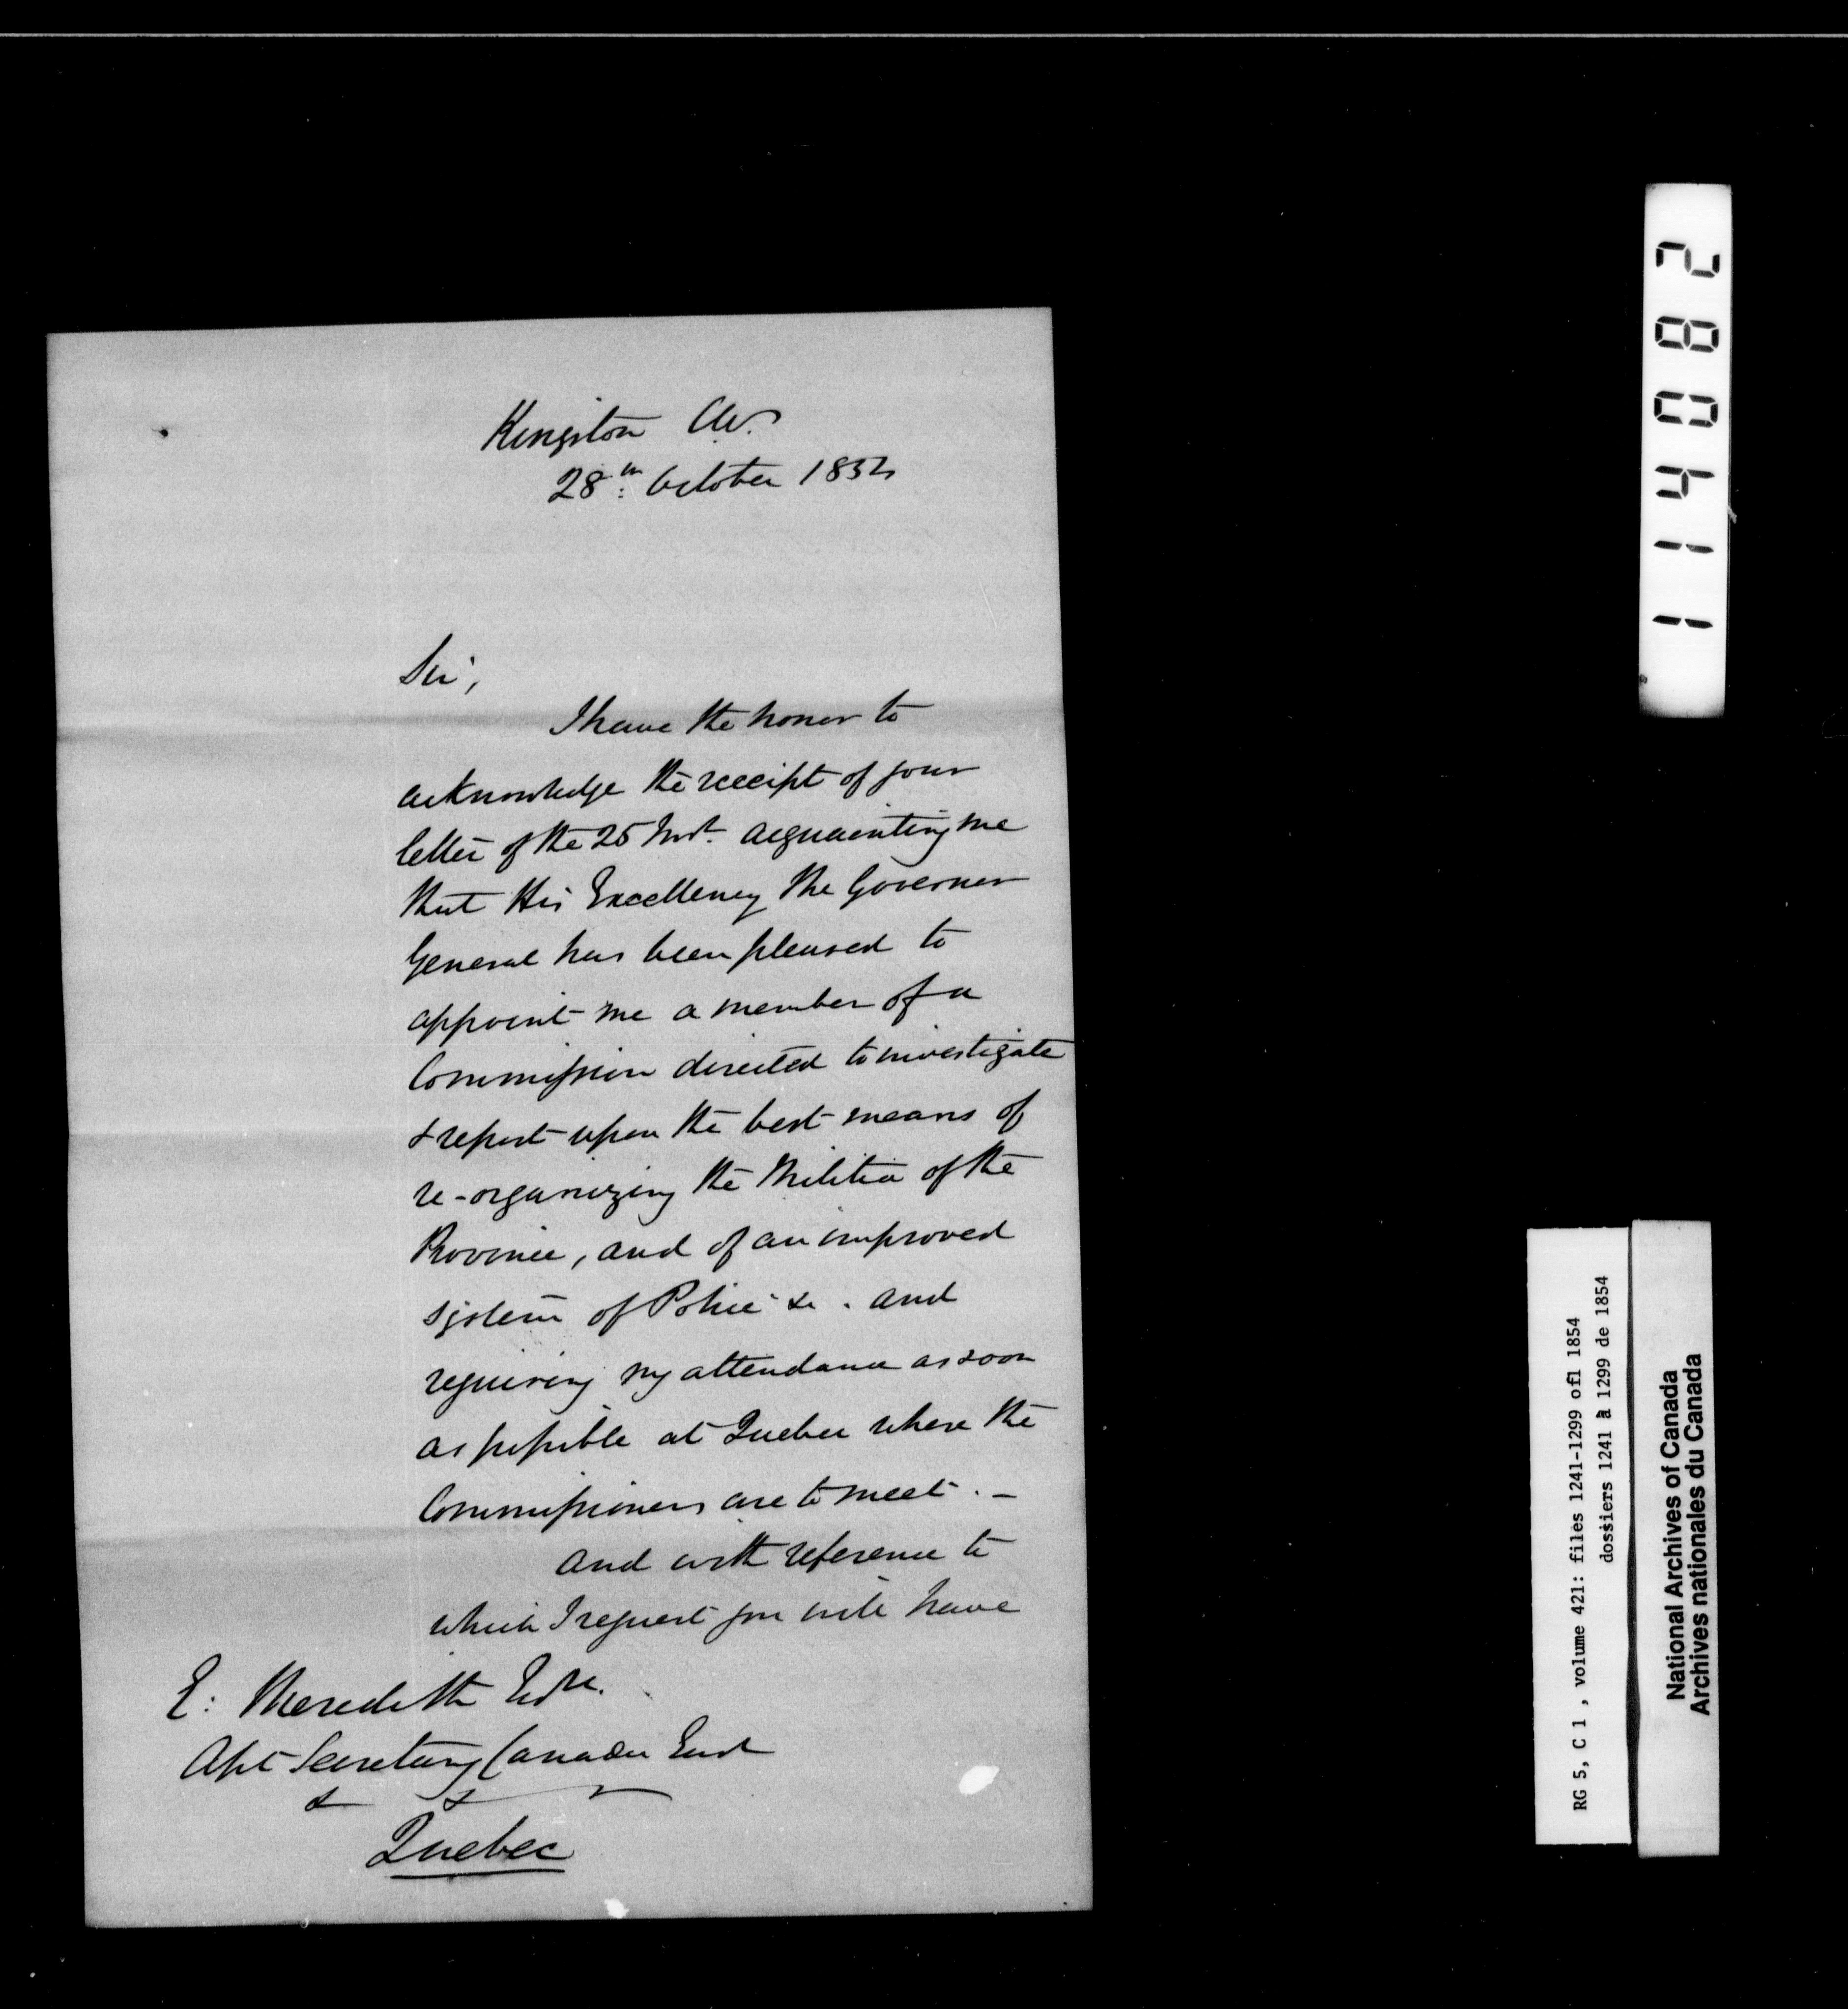 Kingston C.W.
28th: October 1854
Sir,
I have the honor to
acknowledge the receipt of your
letter of the 25 Inst. acquainting me
that His Excellency the Governor
General has been pleased to
appoint me a member of a
Commission directed to investigate
& report upon the best means of
re-organizing the Militia of the
Province, and of an improved
system of Police &c. and
requiring my attendance as soon
as possible at Quebec where the
Commissioners are to meet. –
And with reference to
which I request you will have
E: Meredith Esqre.
Asst Secretary Canada East
& &
Quebec
114082
RG 5, C 1 , volume 421: files 1241-1299 of1 1854
dossiers 1241 à 1299 de 1854
National Archives of Canada
Archives nationales du Canada